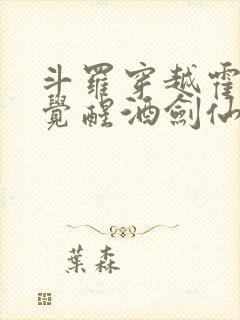 斗羅穿越霍
覺醒酒劍仙
葉森